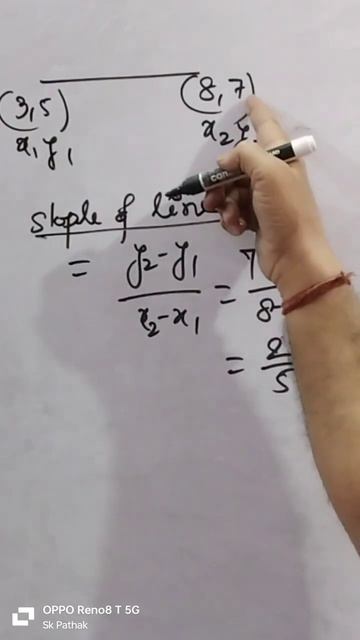 (3,5) (8,7)
x₁ y₁ x₂
slople of line
= y₂-y₁ / x₂-x₁ = 7 / 8
= 2/5
OPPO Reno8 T 5G
Sk Pathak